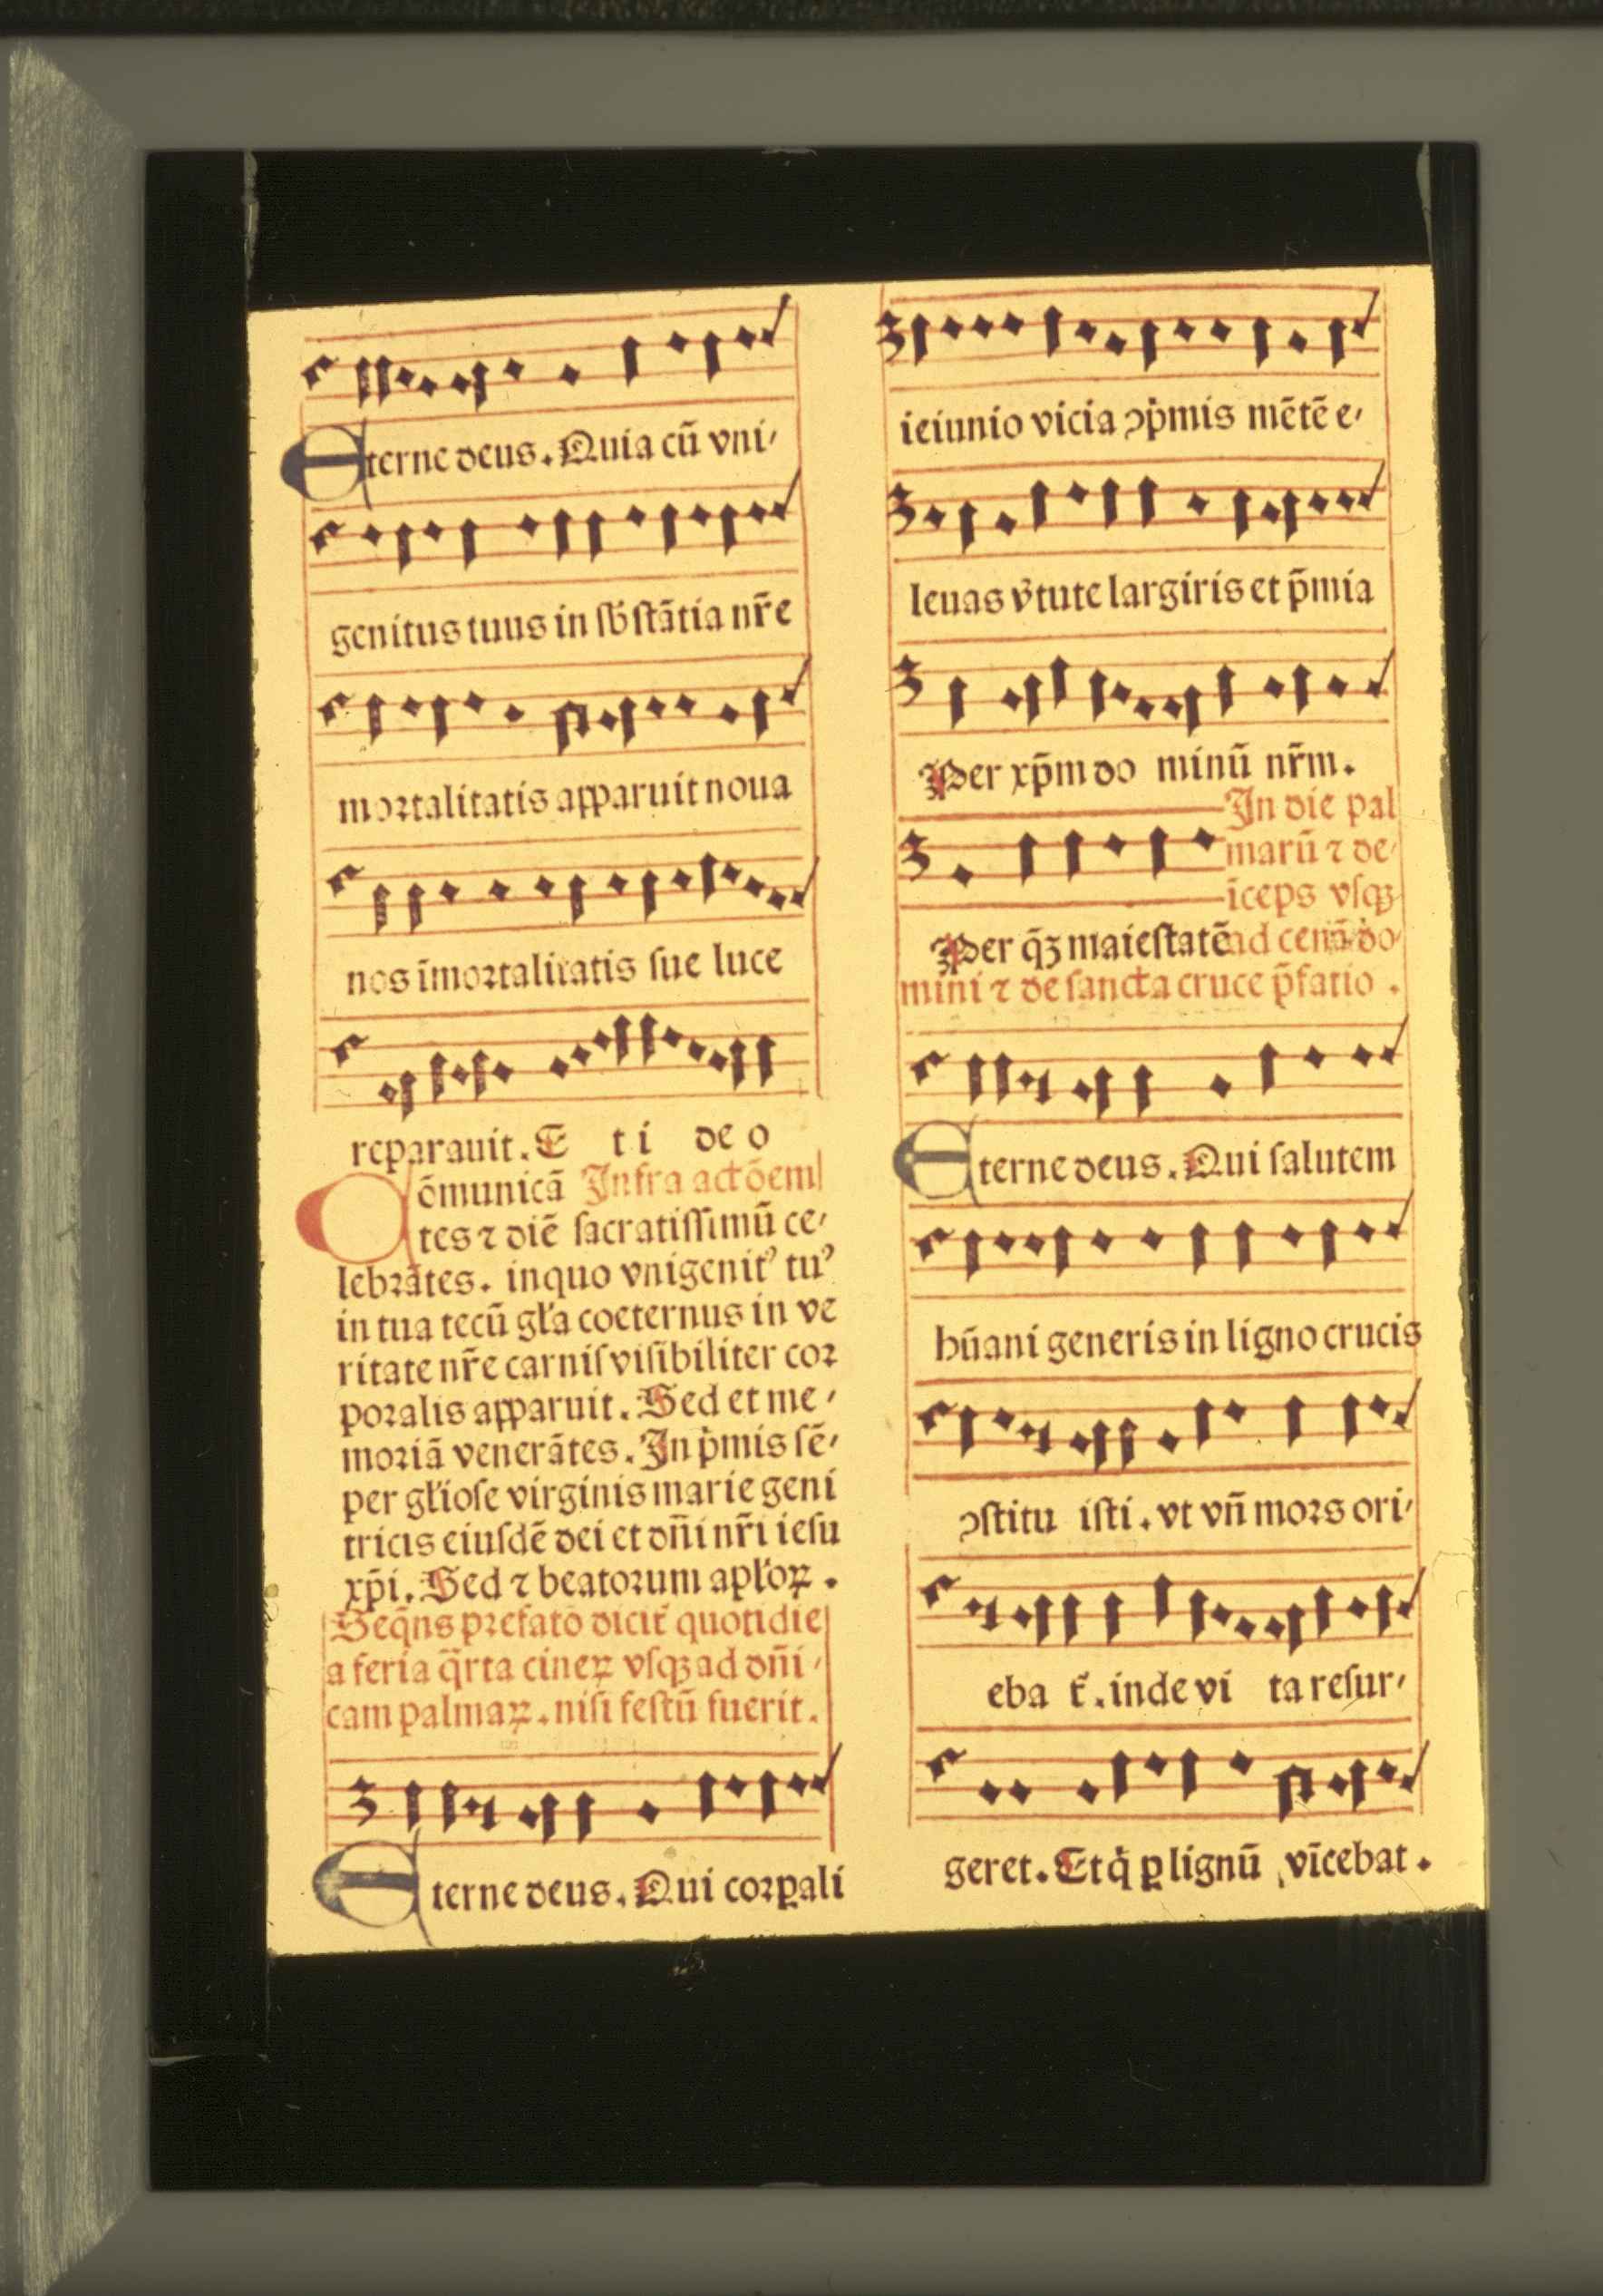 Eterne deus. Quia cū vni⸗
genitus tuus in sb̄stātia nr̄e
mortalitatis apparuit noua
nos īmortalitatis sue luce
reparauit. E t i de o
Cōmunicā Infra actōem
tes ⁊ diē sacratissimū ce⸗
lebrātes. in quo vnigenitꝰ tuꝰ
in tua tecū gl̄a coeternus in ve
ritate nr̄e carnis visibiliter cor
poralis apparuit. Sed et me⸗
moriā venerātes. In pͥmis sē⸗
per gl̄iose virginis marie geni
tricis eiusdē dei et dn̄i nr̄i iesu
xp̄i. Sed ⁊ beatorum apl̄oꝝ.
Seq̄ns prefatō dicit᷑ quotidie
a feria q̄rta cineꝝ vsqꝫ ad dn̄i⸗
cam palmaꝝ. nisi festū fuerit.
Eterne deus. Qui corꝑali
ieiunio vicia ↄpͥmis mētē e⸗
leuas v̓tute largiris et p̄mia
Per xp̄m do minū nr̄m.
In die pal
marū ⁊ de⸗
īceps vsqꝫ
Per q̄ꝫ maiestatē ad cenā do⸗
mini ⁊ de sancta cruce p̄fatio.
Eterne deus. Qui salutem
hūani generis in ligno crucis
ↄstitu isti. vt vn̄ mors ori⸗
eba t᷑. inde vi ta resur⸗
geret. Et qͥ ꝑ lignū vīcebat.